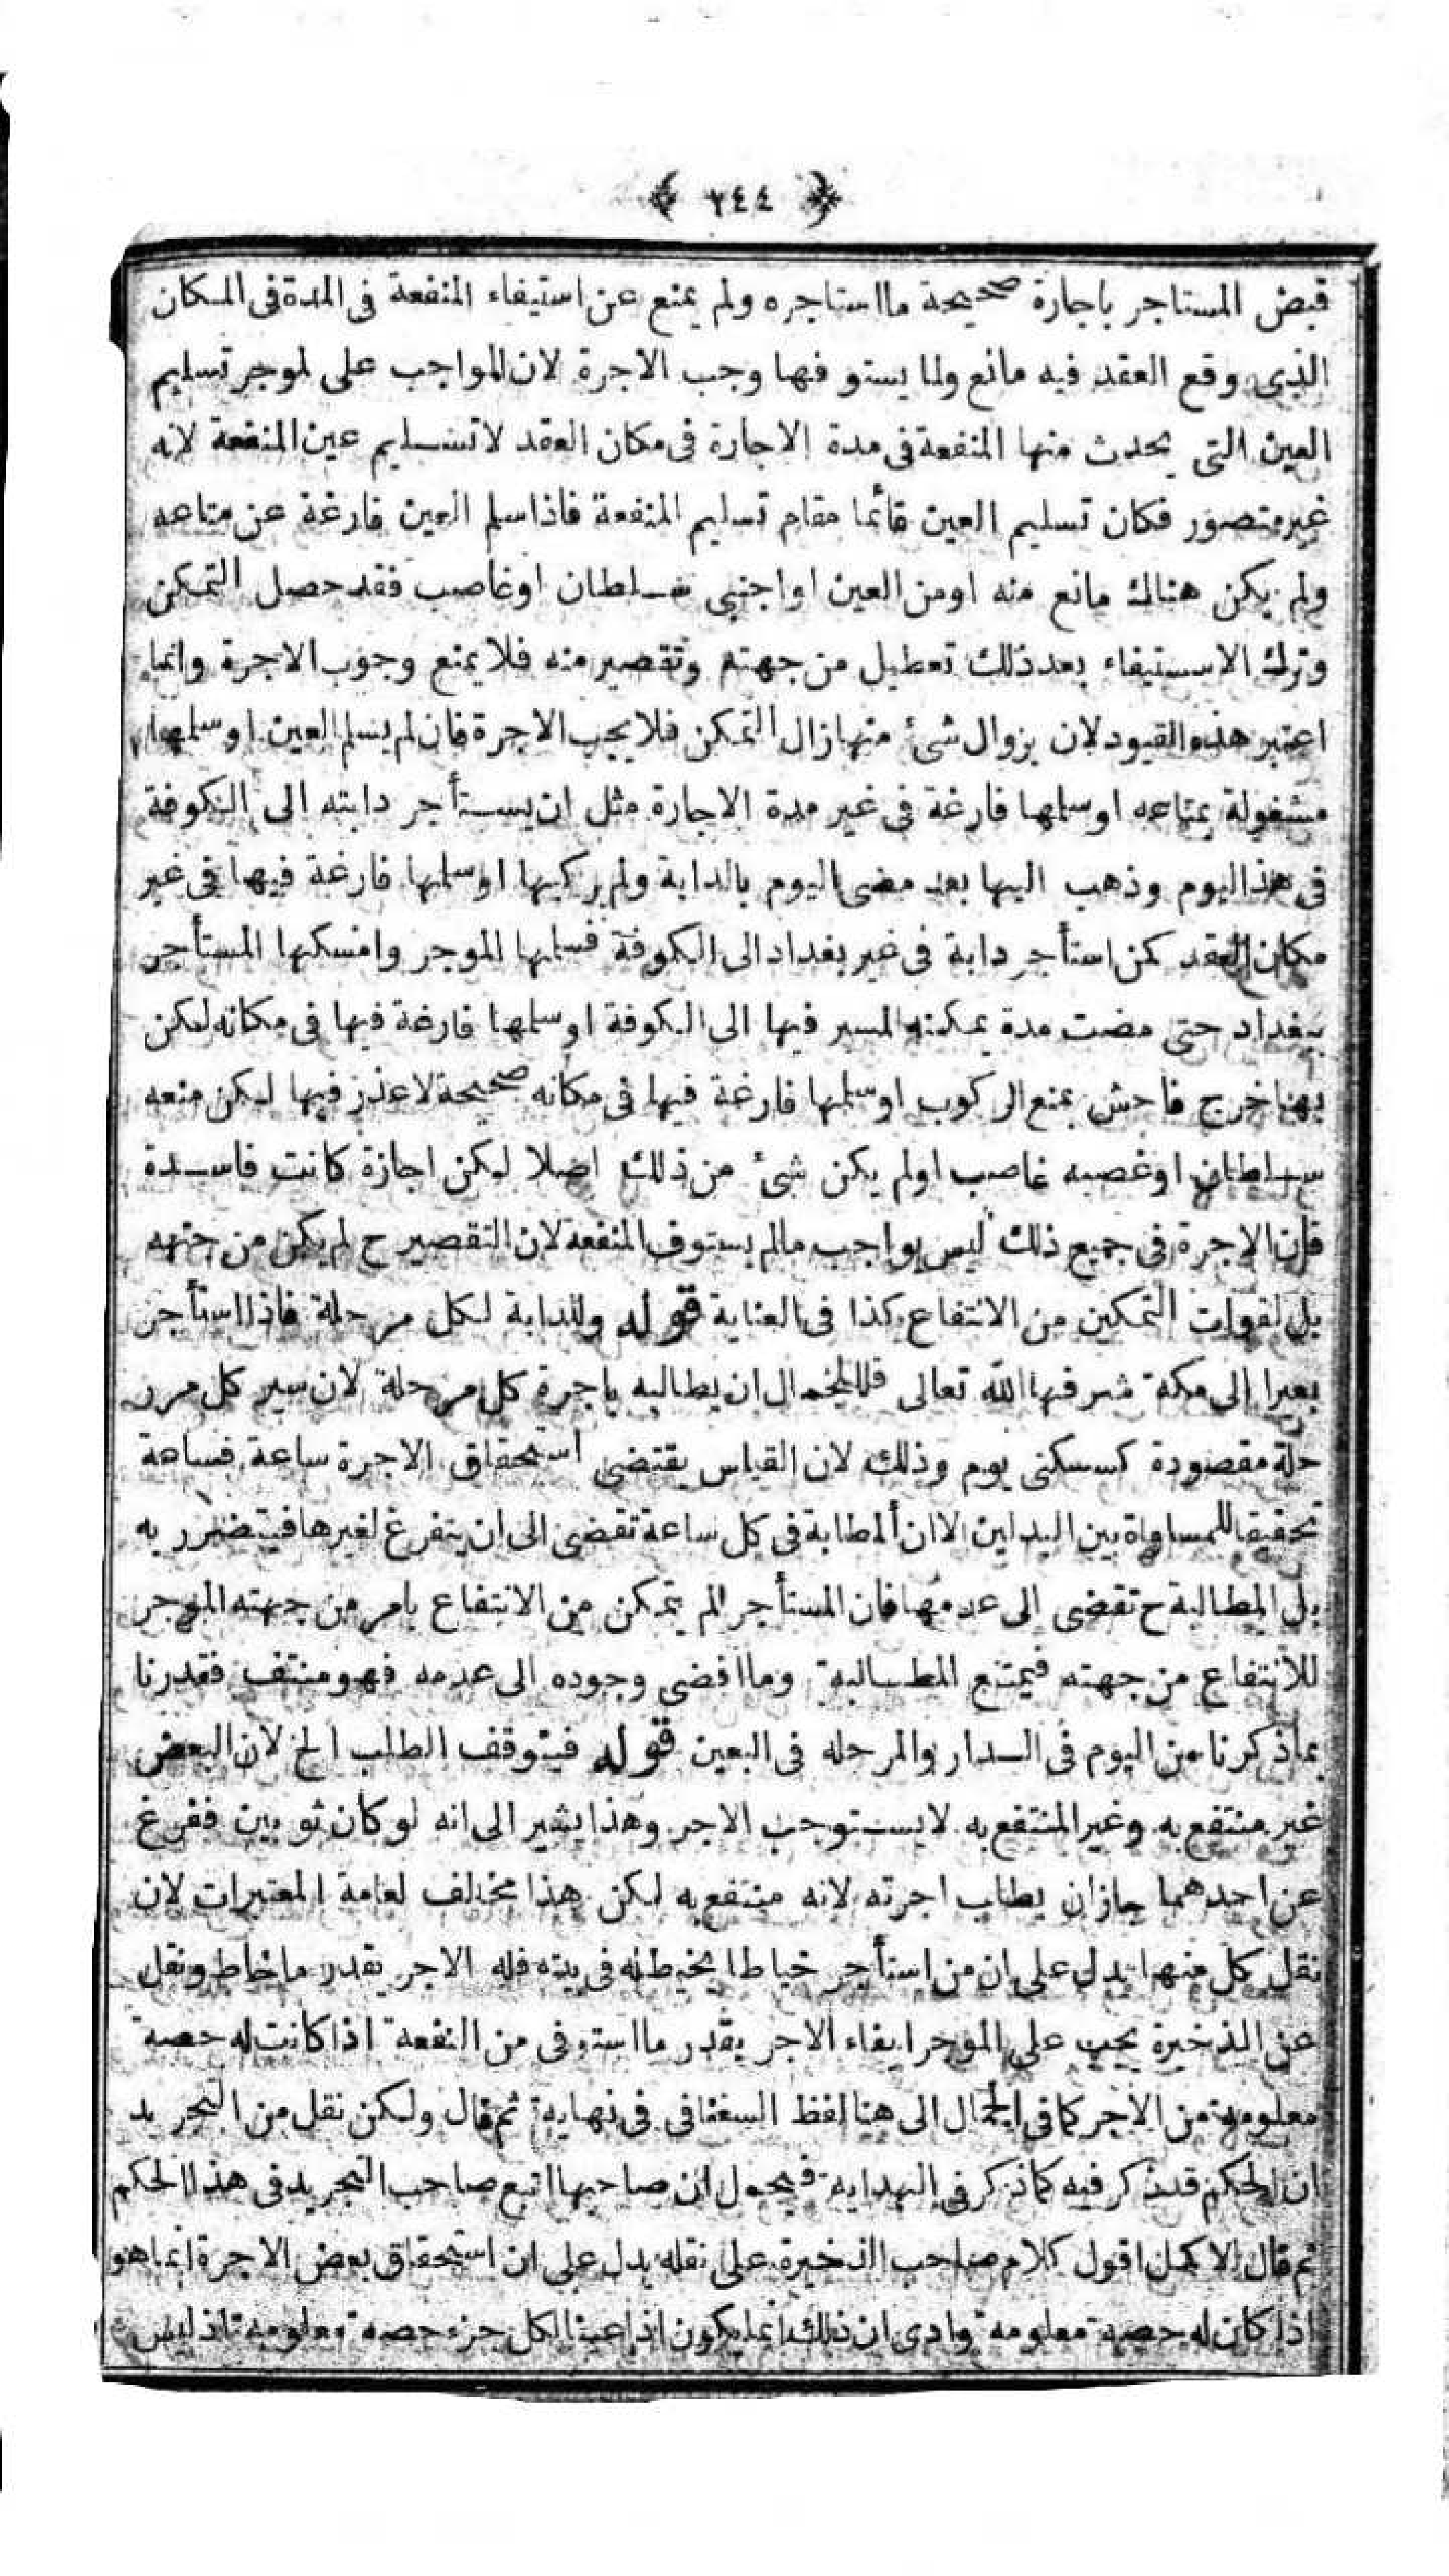 ٢٤٤
قبض المستاجر باجارة صحيحة مااستاجره ولم يمنع عن استيفاء المنفعة فى المدة فى المكان
الذى وقع العقد فيه مانع ولما يستوفها وجب الاجرة لان الواجب على لموجر تسليم
العين التى يحدث منها المنفعة فى مدة الاجارة فى مكان العقد لاتسليم عين المنفعة لانه
غير متصور فكان تسليم العين قائما مقام تسليم المنفعة فاذا سلم العين فارغة عن متاعه
ولم يكن هنالك مانع منه اومن العين اواجنبى سلطان اوغاصب فقد حصل التمكن
وترك الاستيفاء بعد ذلك تعطيل من جهته وتقصير منه فلا يمنع وجوب الاجرة وانما
اعتبر هذه القيود لان بزوال شئ منها زال التمكن فلا يجب الاجرة فان لم يسلم العين اوسلمها
مشغولة بمتاعه اوسلمها فارغة فى غير مدة الاجارة مثل ان يستأجر دابته الى الكوفة
فى هذا اليوم وذهب اليها بعد مضى اليوم بالدابة ولم يركبها اوسلمها فارغة فيها فى غير
مكان العقد كمن استأجر دابة فى غير بغداد الى الكوفة فسلمها الموجر وامسكها المستأجر
ببغداد حتى مضت مدة يمكنه المسير فيها الى الكوفة اوسلمها فارغة فيها فى مكانه لكن
بها خرج فاحش يمنع الركوب اوسلمها فارغة فيها فى مكانه صحيحة لاعذر فيها لكن منعه
سلطان اوغصبه غاصب اولم يكن شئ من ذلك اصلا لكن اجازة كانت فاسدة
فان الاجرة فى جميع ذلك ليس بواجب مالم يستوف المنفعة لان التقصير ح لم يكن من جهته
بل لفوات التمكين من الانتفاع كذا فى العناية قوله وللدابة لكل مرحلة فاذا استأجر
بعيرا الى مكة شرفها الله تعالى فللجمال ان يطالبه باجرة كل مرحلة لان سير كل مر
حلة مقصودة كسكنى يوم وذلك لان القياس يقتضى استحقاق الاجرة ساعة فساعة
تحقيقا للمساواة بين البدلين الاان المطابة فى كل ساعة تفضى الى ان يتفرغ لغيرها فيتضرر به
بل المطالبة ح تفضى الى عدمها فان المستأجر لم يتمكن من الانتفاع بامر من جهته الموجر
للانتفاع من جهته فيمتنع المطالبة وماافضى وجوده الى عدمه فهو منتف فقدرنا
بماذكرنا من اليوم فى الدار والمرحله فى البعير قوله فيتوقف الطلب الخ لان البعض
غير منتفع به وغير المنتفع به لايستوجب الاجر وهذا يشير الى انه لو كان ثوبين ففرغ
عن احدهما جازان يطاب اجرته لانه منتفع به لكن هذا مخالف لعامة المعتبرات لان
نقل كل منها يدل على ان من استأجر خياطا يخيط له فى بيته فله الاجر بقدر ماخاط ونقل
عن الذخيرة يجب على الموجر ايفاء الاجر بقدر مااستوفى من النفعة اذا كانت له حصة
معلومة من الاجر كما فى الجمال الى هنا لفظ السغناقى فى نهايه ثم قال ولكن نقل من التجريد
ان الحكم قد ذكر فيه كماذكر فى الهداية فيحمل ان صاحبها اتبع صاحب التجريد فى هذا الحكم
ثم قال الاكمل اقول كلام صاحب الذخيرة على نقله يدل على ان استحقاق بعض الاجرة انماهو
اذا كان له حصة معلومة وادى ان ذلك انما يكون اذا عينا لكل جزء حصة معلومة اذ ليس